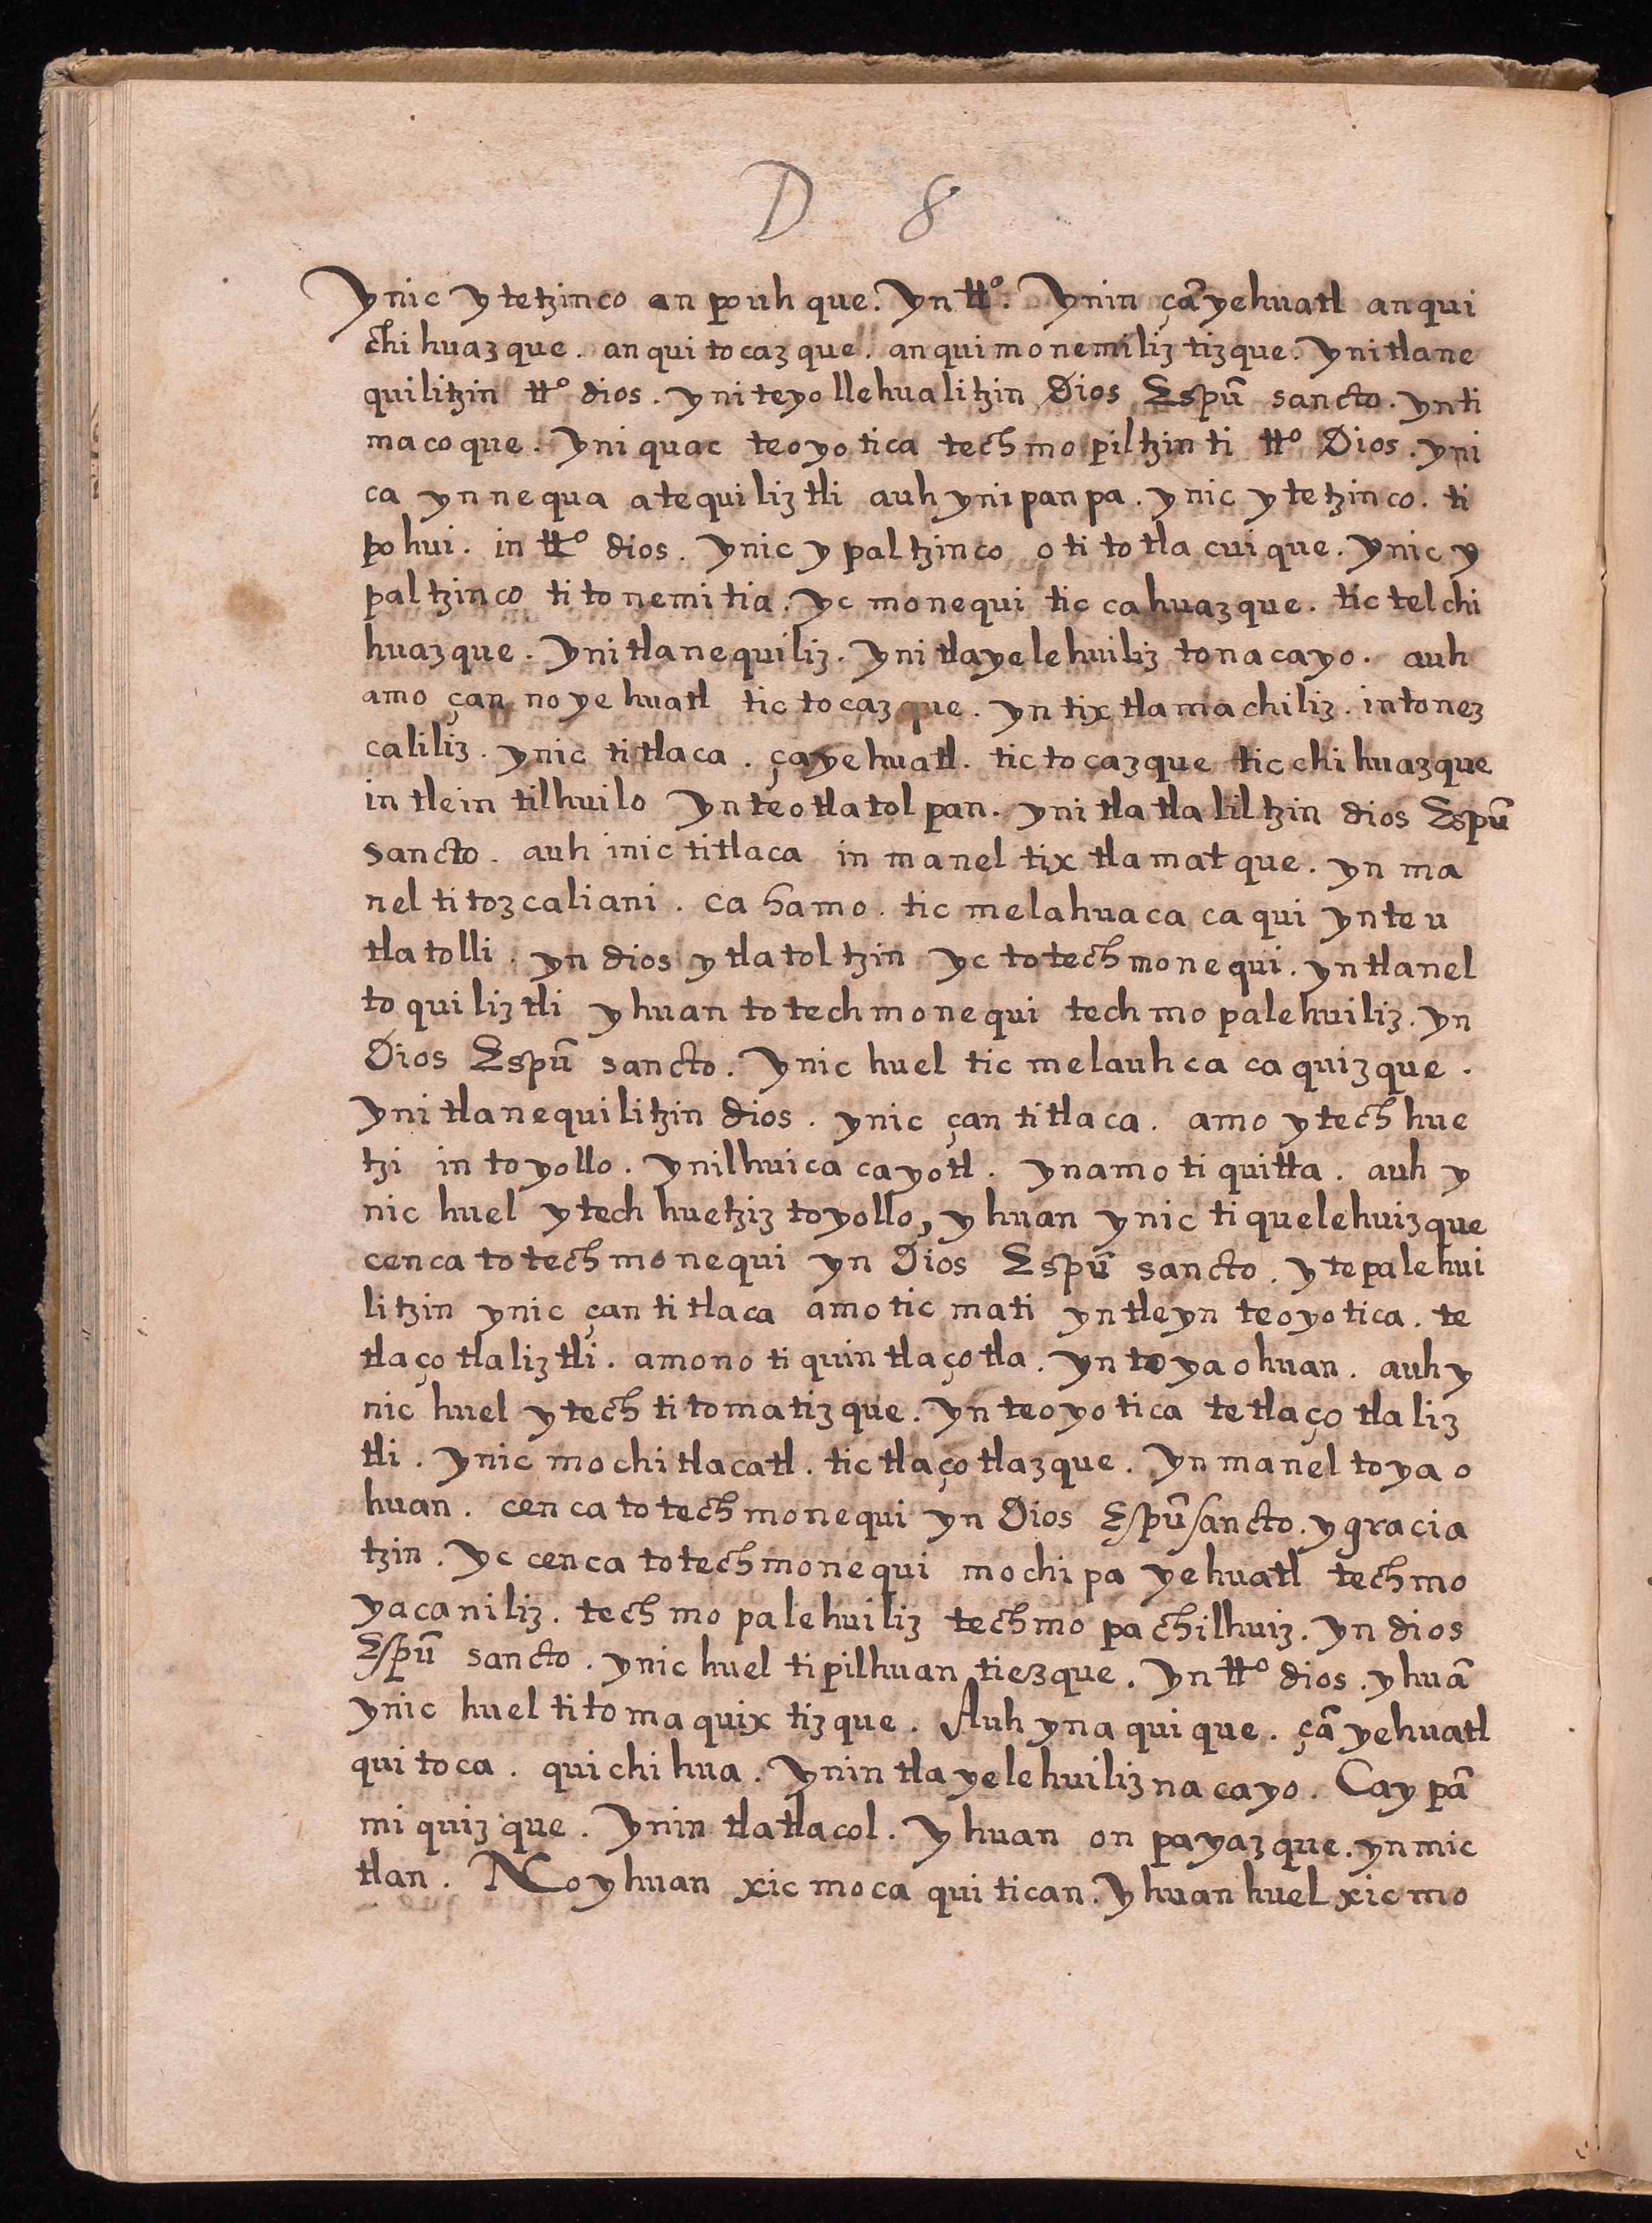 D 8
ynic ytetzinco an pouh que. yn tt̄o. ynin çā yehuatl an qui
chi huaz que. an qui to caz que. an qui mo nemiliz tiz que. yni tlane
quilitzin tt̄o dios. yni teyo llehualitzin Dios Espū sancto. yn ti
ma co que. yni quac teoyo tica tech mo piltzin ti tt̄o Dios. yni
ca yn nequa atequi liz tli auh yni pan pa. ynic ytetzinco. ti
po hui. in tt̄o dios. ynic y pal tzinco o ti to tla cui que. ynic y
pal tzinco ti to nemi tia. yc monequi tic ca huaz que. tic tel chi
huaz que. yni tlanequiliz. yni tlayelehuiliz tonacayo. auh
amo çan no ye huatl tic to caz que. yn tix tla ma chiliz. in tonez
caliliz. ynic ti tlaca. ça yehuatl. tic to caz que tic chi huaz que
in tlein tilhuilo yn teo tla tol pan. yni tla tla liltzin dios Espū
sancto. auh inic titlaca in manel tix tla mat que. yn ma
nel ti toz caliani. ca hamo. tic melahuaca ca qui yn te u
tla tolli. yn dios y tla tol tzin yc totech monequi. yn tlanel
to qui liz tli yhuan to tech monequi tech mo palehuiliz. yn
Dios Espū sancto. ynic huel tic melauh ca ca quiz que.
yni tlanequilitzin dios. ynic çan ti tlaca. amo y tech hue
tzi in to yollo. ynilhuica ca yotl. yn amo ti quitta. auh y
nic huel y tech huetziz toyollo, y huan ynic ti quelehuiz que
cenca to tech monequi yn Dios Espū sancto. y tepalehui
litzin ynic çan ti tlaca amo tic mati yn tleyn teoyotica. te
tlaço tlaliz tli. amo no ti quin tlaço tla. yn to ya o huan. auh y
nic huel y tech ti to matiz que. yn teoyo tica te tlaço tla liz
tli. ynic mo chi tlacatl. tic tlaço tlaz que. yn manel to ya o
huan. cen ca to tech monequi yn Dios Espū sancto. y gracia
tzin. yc cen ca to tech monequi mo chi pa yehuatl tech mo
yacaniliz. tech mo palehuiliz tech mo pachilhuiz. yn dios
Espū sancto. ynic huel ti pilhuan tiez que. yn tt̄o dios. y huā
ynic huel ti to ma quix tiz que. Auh yn a qui que. çā yehuatl
qui to ca. qui chi hua. ynin tla yelehuiliz na cayo. Ca y pā
mi quiz que. ynin tla tlacol. y huan on payaz que. yn mic
tlan. No y huan xic mo ca qui tican. y huan huel xic mo